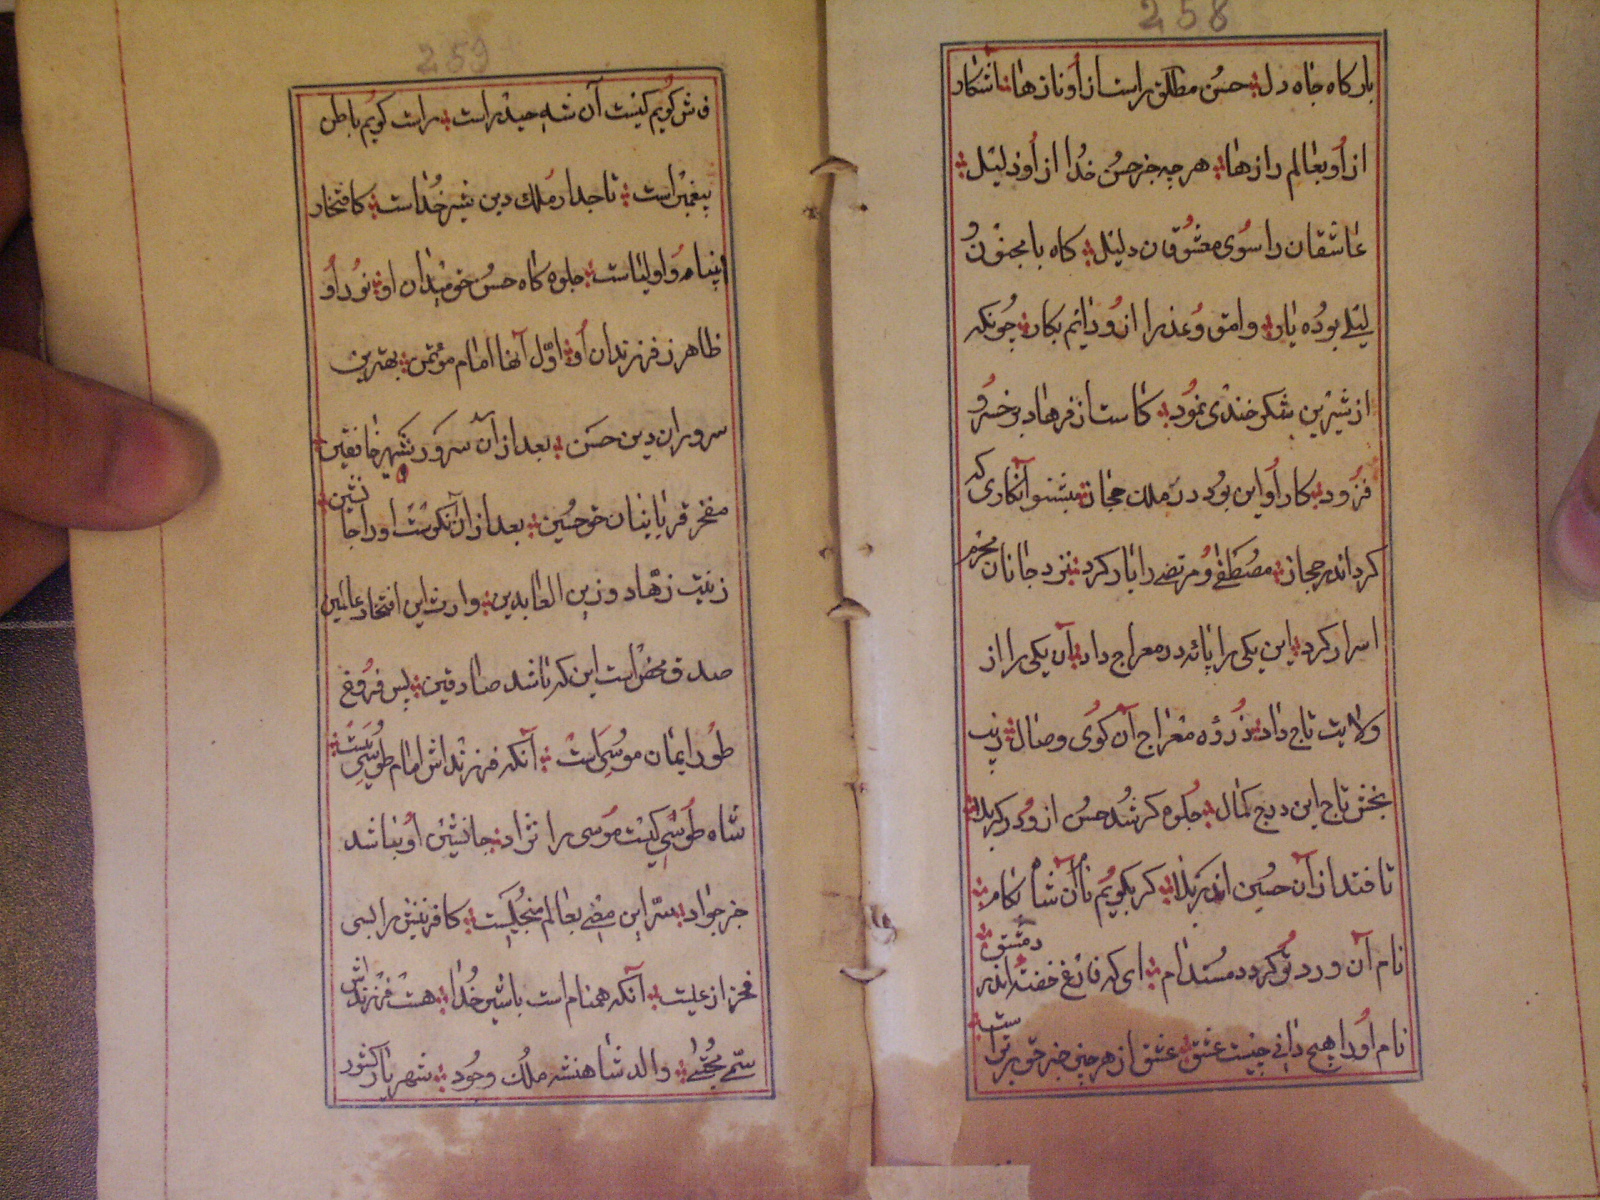 258
بارکاه جاه دل حسن مطلق راست از او نازها اشکار
از او بعالم رازها هر چه جز حسن خدا از او ذلیل
عاشقان را سوی معشوقان دلیل کاه با مجنون و
لیلی بوده یار وامق و عذرا ازو دایم بکار چونکه
از شیرین شکر خندی نمود کاست از فرهاد بر خسرو
فزود کار او این بود در ملک حجاز بشنو آنکاری که
کرد اندر حجاز مصطفی و مرتضی را یار کرد نزد جانان محرم
اسرار کرد این یکی را پایه در معراج داد آن یکی را از
ولایت تاج داد ذروه معراج آن کوی وصال زیب
بخش تاج این درج کمال جلوه کر شد حسن ازو در کربلا
تافتند از آن حسین اندر کربلا کر بکویم نام آن شاه نکام
نام آن ورد تو کردد مستدام ای که فارغ خفتۀ اندر دمشق
نام او را هیچ دانی چیست عشق عشق از هر چیز جز حق برتر است
259
فاش کویم کیست آن شه حیدر است راست کویم باطن
پیغمبر است تاجدار ملک دین شیر خداست کافتخار
انبیاء و اولیاست جلوه کاه حسن حق میدان او نور او
ظاهر ز فرزندان او اول آنها امام مؤتمن بهترین
سروران دین حسن بعد از آن سرور شهر خافقین
مفخر قربانیان حق حسین بعد از آن نیکوست او را جانشین
زینت زهاد و زین العابدین وارث این افتخار عالمین
صدق محض است این که باشد صادقین پس فروغ
طور ایمان موسی است آنکه فرزنداش امام طوسی است
شاه طوسی کیست موسی را نژاد جانشین او نباشد
جز جواد سر این معنی بعالم منجلیست کافرینش را بسی
فخر از علیست آنکه همنام است با شیر خدا هست فرزنداش
سمی مجتبی والد شاهنشه ملک وجود شهریار کشور